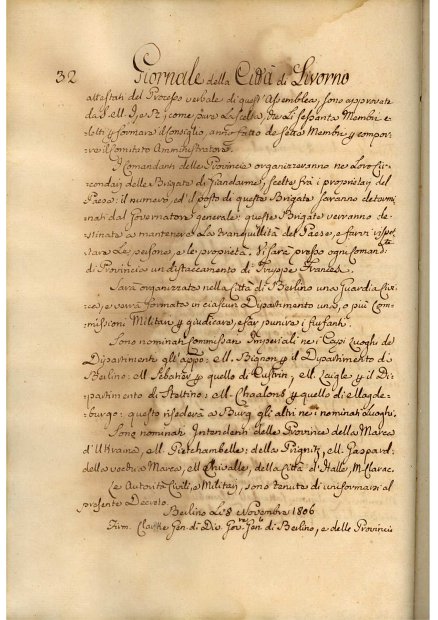 32 Giornale della Città di Livorno
attestati del Processo verbale di quest'Assemblea, sono approvate
da S. M. I. e R.; come pure la scelta, tra li sessanta Membri e
letti p formare il Consiglio, anche fatto de sette Membri p compor
re il Comitato Amministratore.
I Comandanti delle Provincie organizzeranno ne Loro Cir
condarj delle Brigate di Giandarmi, scelte frà i proprietarj del
Paese: il numero, ed il posto di queste Brigate saranno determi
nati dal Governatore generale: queste Brigate verranno de
stinate a mantenere La tranquillità del Paese, e far rispet
tare Le persone, e le proprietà. Vi sarà presso ogni Comand.
di Provincia un distaccamento di Truppe Francesi.
Sarà organizzata nella Città di Berlino una Guardia Civi
ca, e verrà formata in ciascun Dipartimento una, o più Com
missioni Militari p giudicare, e far punire i furfanti.
Sono nominati Commissarj Imperiali ne i Capi Luoghi de
Dipartimenti gl'appo: M. Bignon p il Dipartimento di
Berlino: M. Sabatier p quello di Custrin, M. Laigle p il Di
partimento di Stettino: M. Chaalons p quello di Magde
burgo: questo risederà a Burg, gli altri ne i nominati Luoghi.
Sono nominati Intendenti delle Provincie della Marca
d'Ukraina, M. Pietchambelle: della Prignitz, M. Gaspard:
della vecchia Marca, M. Chivalle, della Città d'Halle, M. Clarac
e Autorità Civili, e Militari, sono tenute di uniformarsi al
presente Decreto.
Berlino Li 8 Novembre 1806
Firm. Clarke Gen. di Div. Gov.re Gen. di Berlino, e delle Provincie